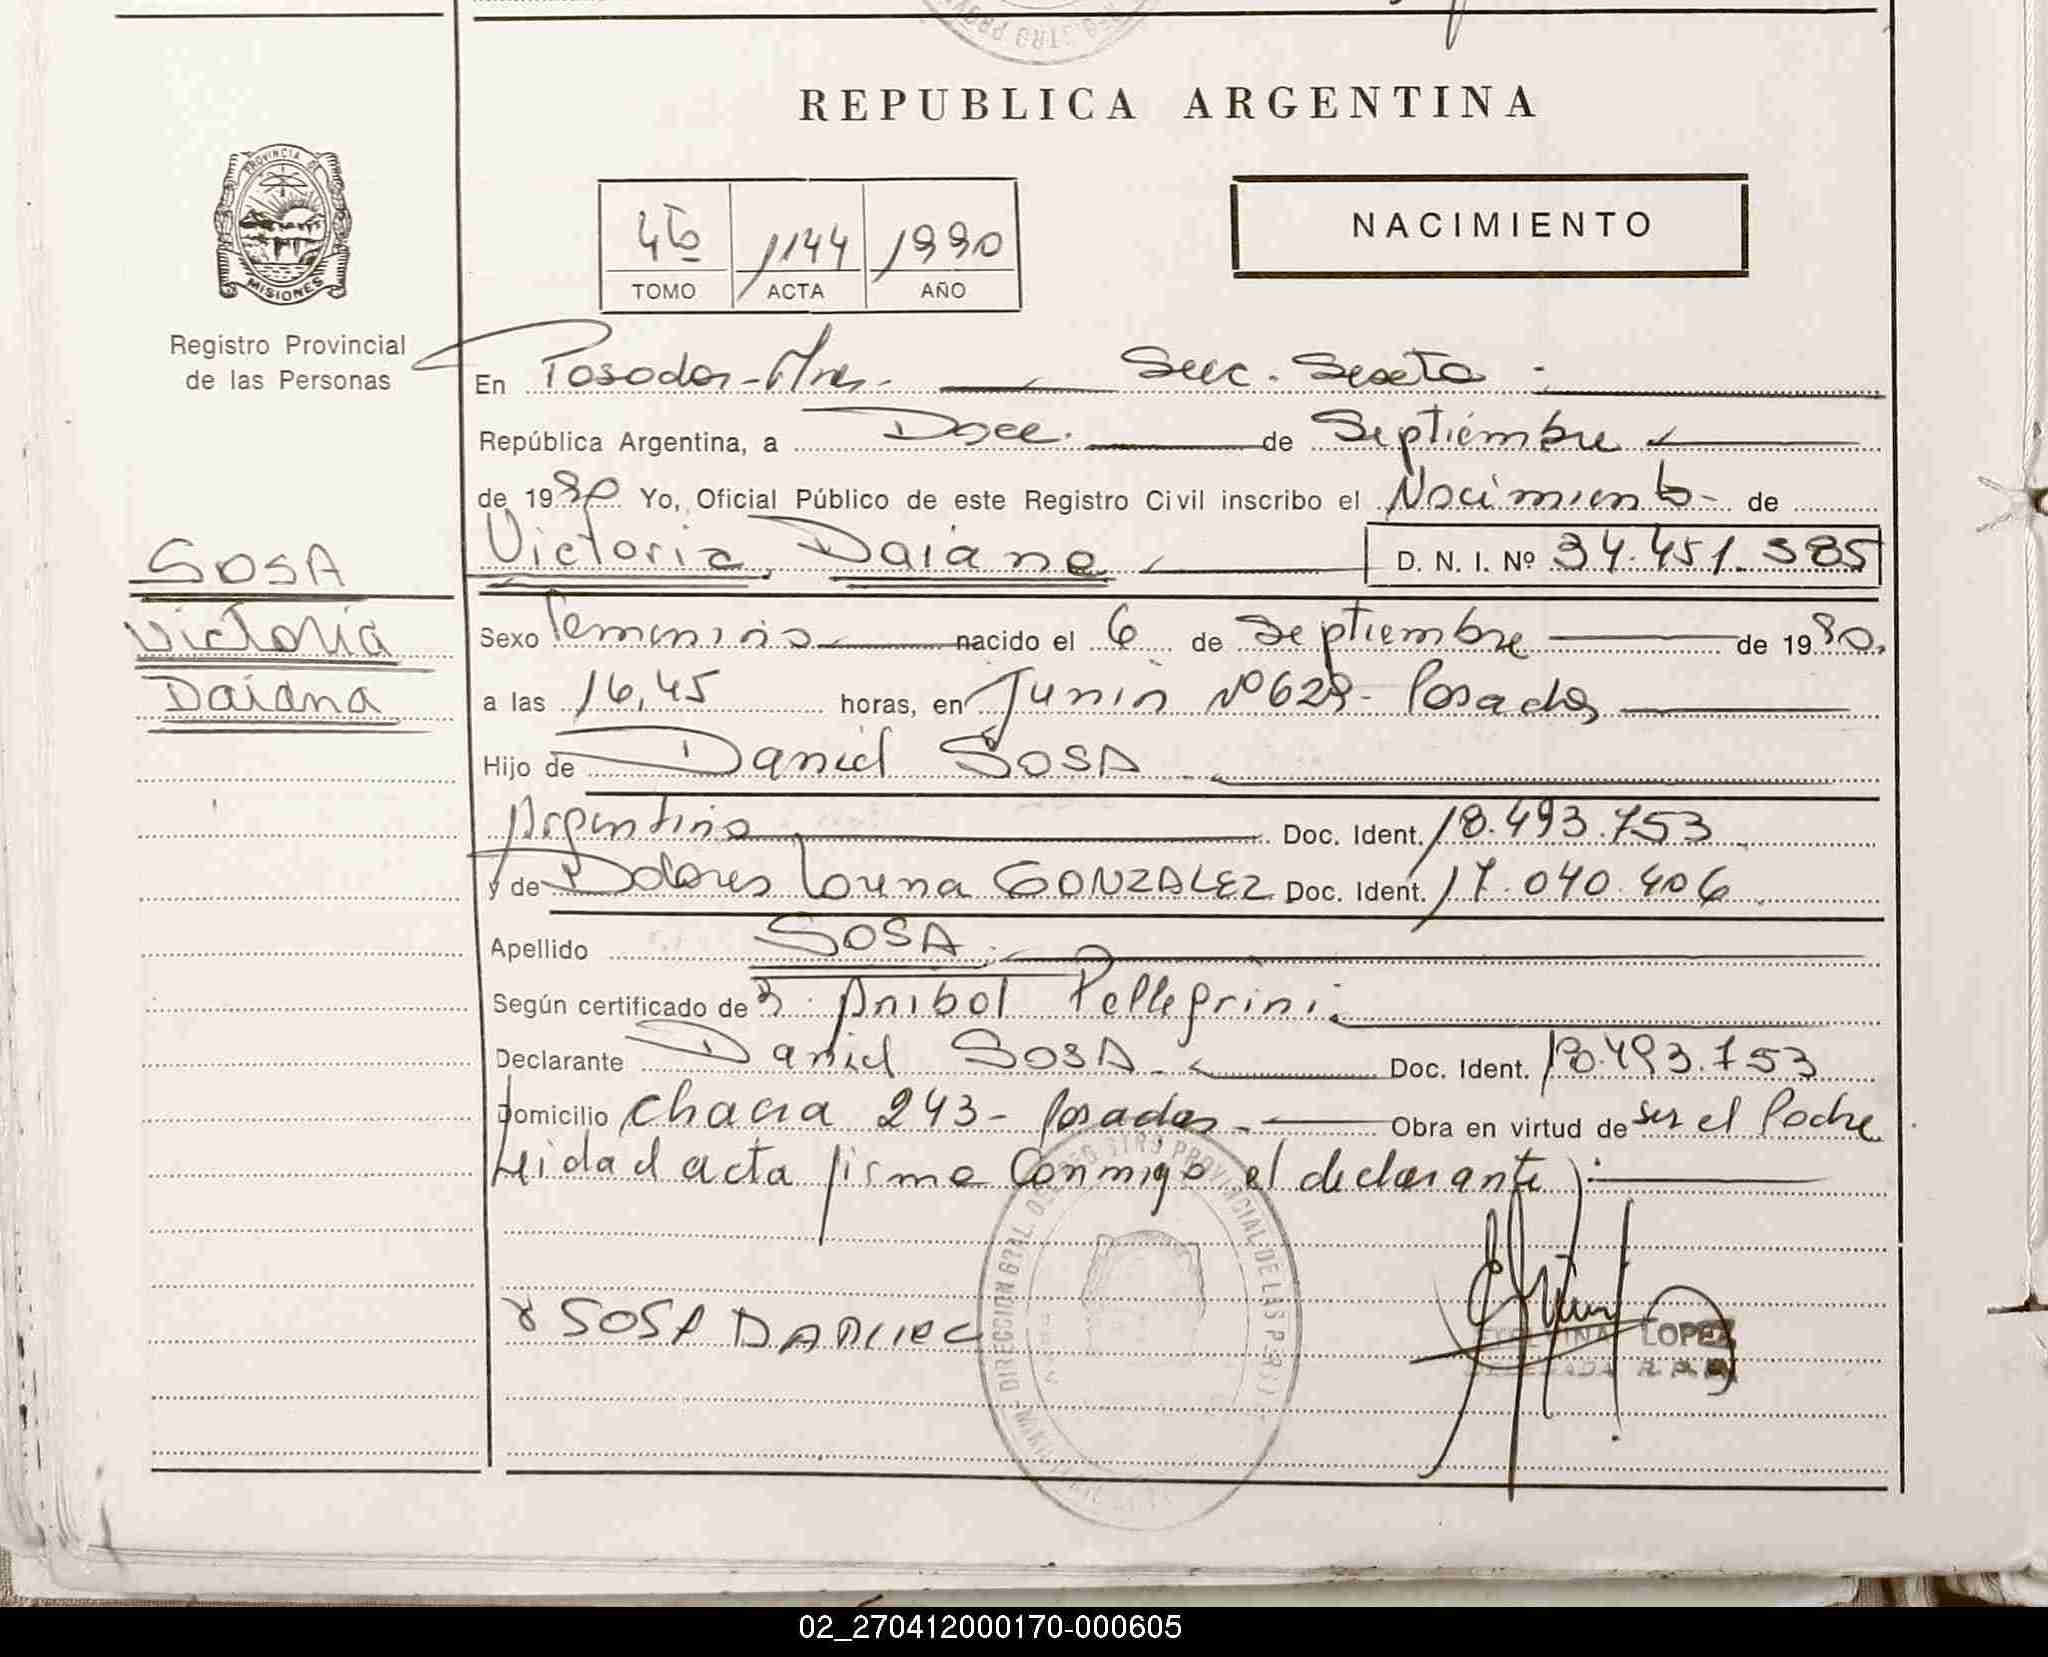 REPUBLICA ARGENTINA
PROVINCIA DE
MISIONES
Registro Provincial
de las Personas
4to 1144 1990
TOMO ACTA AÑO
NACIMIENTO
En Posadas-Mnes.- Secc. Sexta
República Argentina, a Doce. de Septiembre
de 1990 Yo, Oficial Público de este Registro Civil inscribo el Nacimiento- de
Victoria, Daiana D. N. I. Nº 34.451.385
SOSA
Victoria
Daiana
Sexo femenino nacido el 6 de Septiembre de 1990.
a las 16,45 horas, en Junin Nº 629- Posadas
Hijo de Daniel SOSA
Argentino Doc. Ident. 18.493.753
y de Dolores Lorena GONZALEZ Doc. Ident. 17.040.406
Apellido SOSA.
Según certificado de Anibal Pellegrini
Declarante Daniel SOSA Doc. Ident. 18.493.753
Domicilio Chacra 243- Posadas.- Obra en virtud de ser el Padre
Leida el acta firma Conmigo el declarante
SOSA DANIEL
DIRECCION GRAL. DEL REGISTRO PROVINCIAL DE LAS PERS
LOPEZ
DELEGADA R.P.P.
02_270412000170-000605